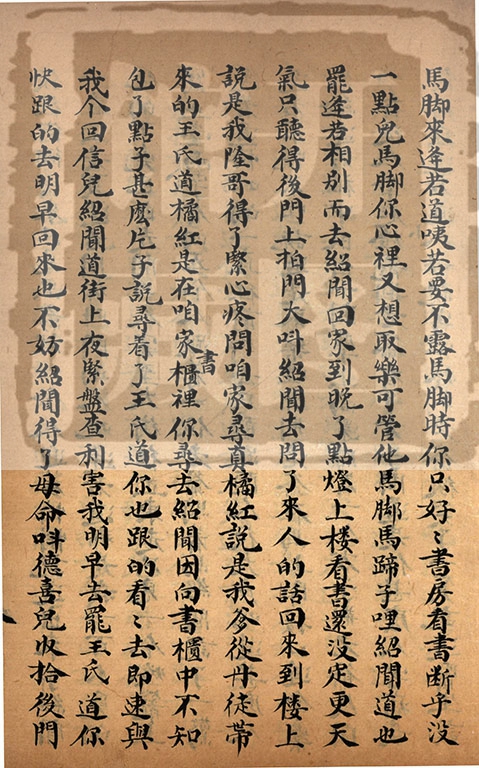 馬脚來逢若道咦若要不露馬脚時你只好〻書房看書断乎没
一點兒馬脚你心裡又想取樂可管他馬脚馬蹄子哩紹聞道也
罷逢若相别而去紹聞回家到晚了點燈上楼看書還没定更天
氣只聽得後門上柏門大呌紹聞去問了來人的話回來到楼上
說是我隆哥得了緊心疼問咱家尋真橘紅說是我爹從丹徒帯
來的王氏道橘紅是在咱家書櫃裡你尋去紹聞因向書櫃中不知
包了點子甚麽片子說尋看了王氏道你也跟的看〻去即速與
我个回信兒紹聞道街上夜緊盤查利害我明早去罷王氏道你
快跟的去明早回來也不妨紹聞得了母命呌德喜兒收拾後門